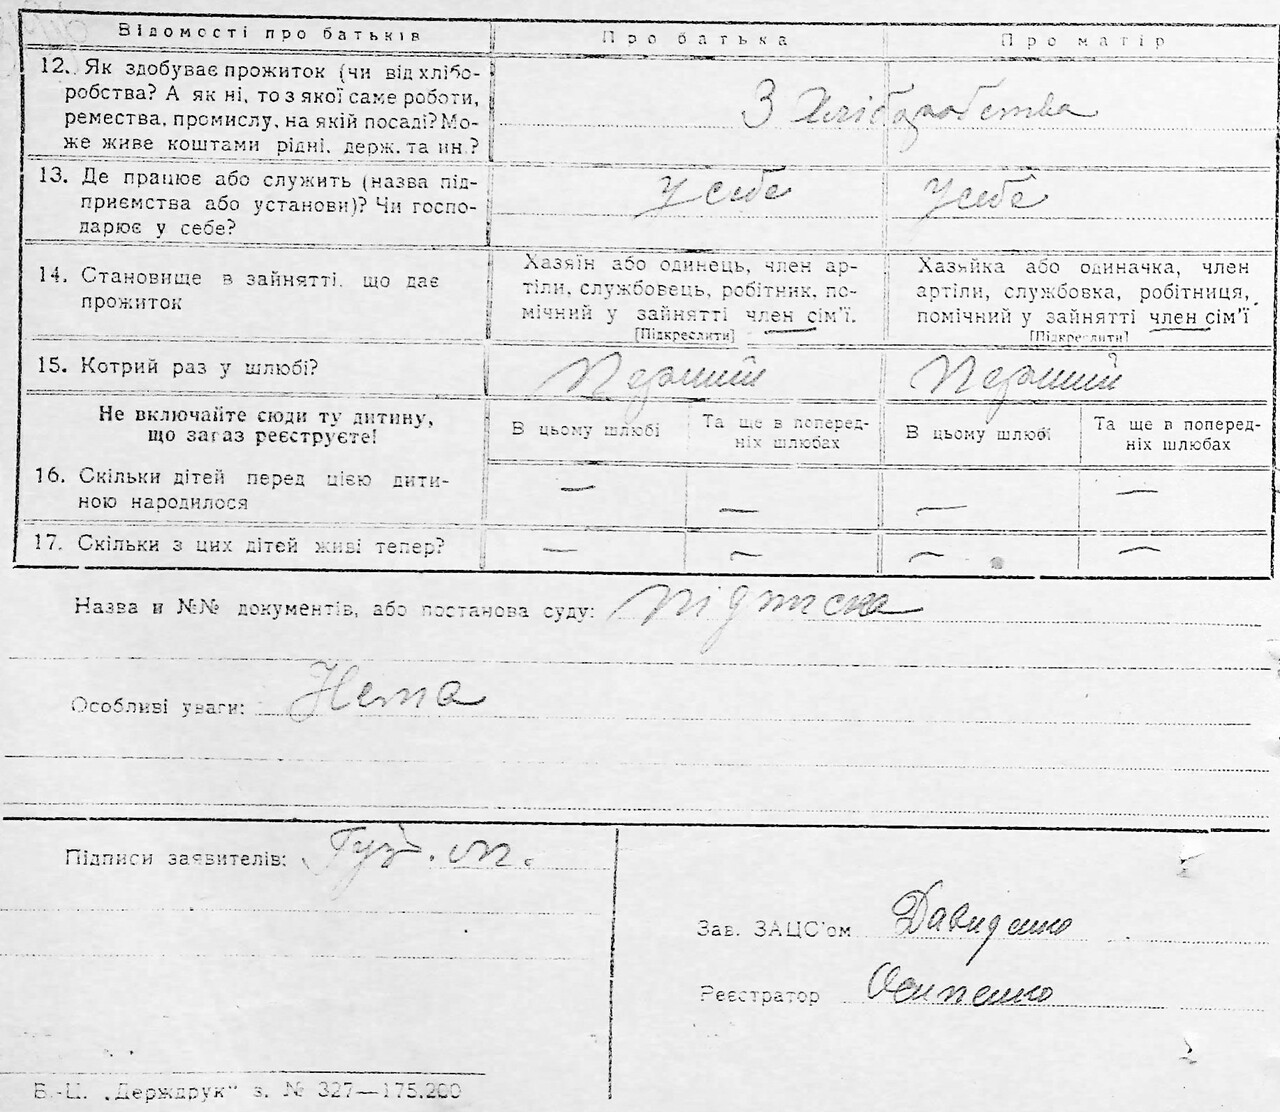 Відомості про батьків Про батька Про матір
12. Як здобуває прожиток (чи від хлібо-
робства? А як ні, то з якої саме роботи,
ремества, промислу, на якій посаді? Мо-
же живе коштами рідні, держ. та ин.?
З хліборобства
13. Де працює або служить (назва під-
приємства або установи)? Чи госпо-
дарює у себе?
У себе У себе
14. Становище в зайнятті, що дає
прожиток
Хазяїн або одинець, член ар-
тіли, службовець, робітник, по-
мічний у зайнятті член сім'ї.
[Підкреслити]
Хазяйка або одиначка, член
артіли, службовка, робітниця,
помічний у зайнятті член сім'ї
[Підкреслити]
15. Котрий раз у шлюбі?
Перший Перший
Не включайте сюди ту дитину,
що загаз реєструєте!
В цьому шлюбі
Та ще в поперед-
ніх шлюбах
В цьому шлюбі
Та ще в поперед-
ніх шлюбах
16. Скільки дітей перед цією дити-
ною народилося
— — — —
17. Скільки з цих дітей живі тепер?
— — — —
Назва и №№ документів, або постанова суду: підписка
Особливі уваги: Нема
Підписи заявителів: Гуз.
Зав. ЗАЦС'ом Давиденко
Реєстратор Осипенко
Б.-Ц. „Держдрук" з. № 327—175.200